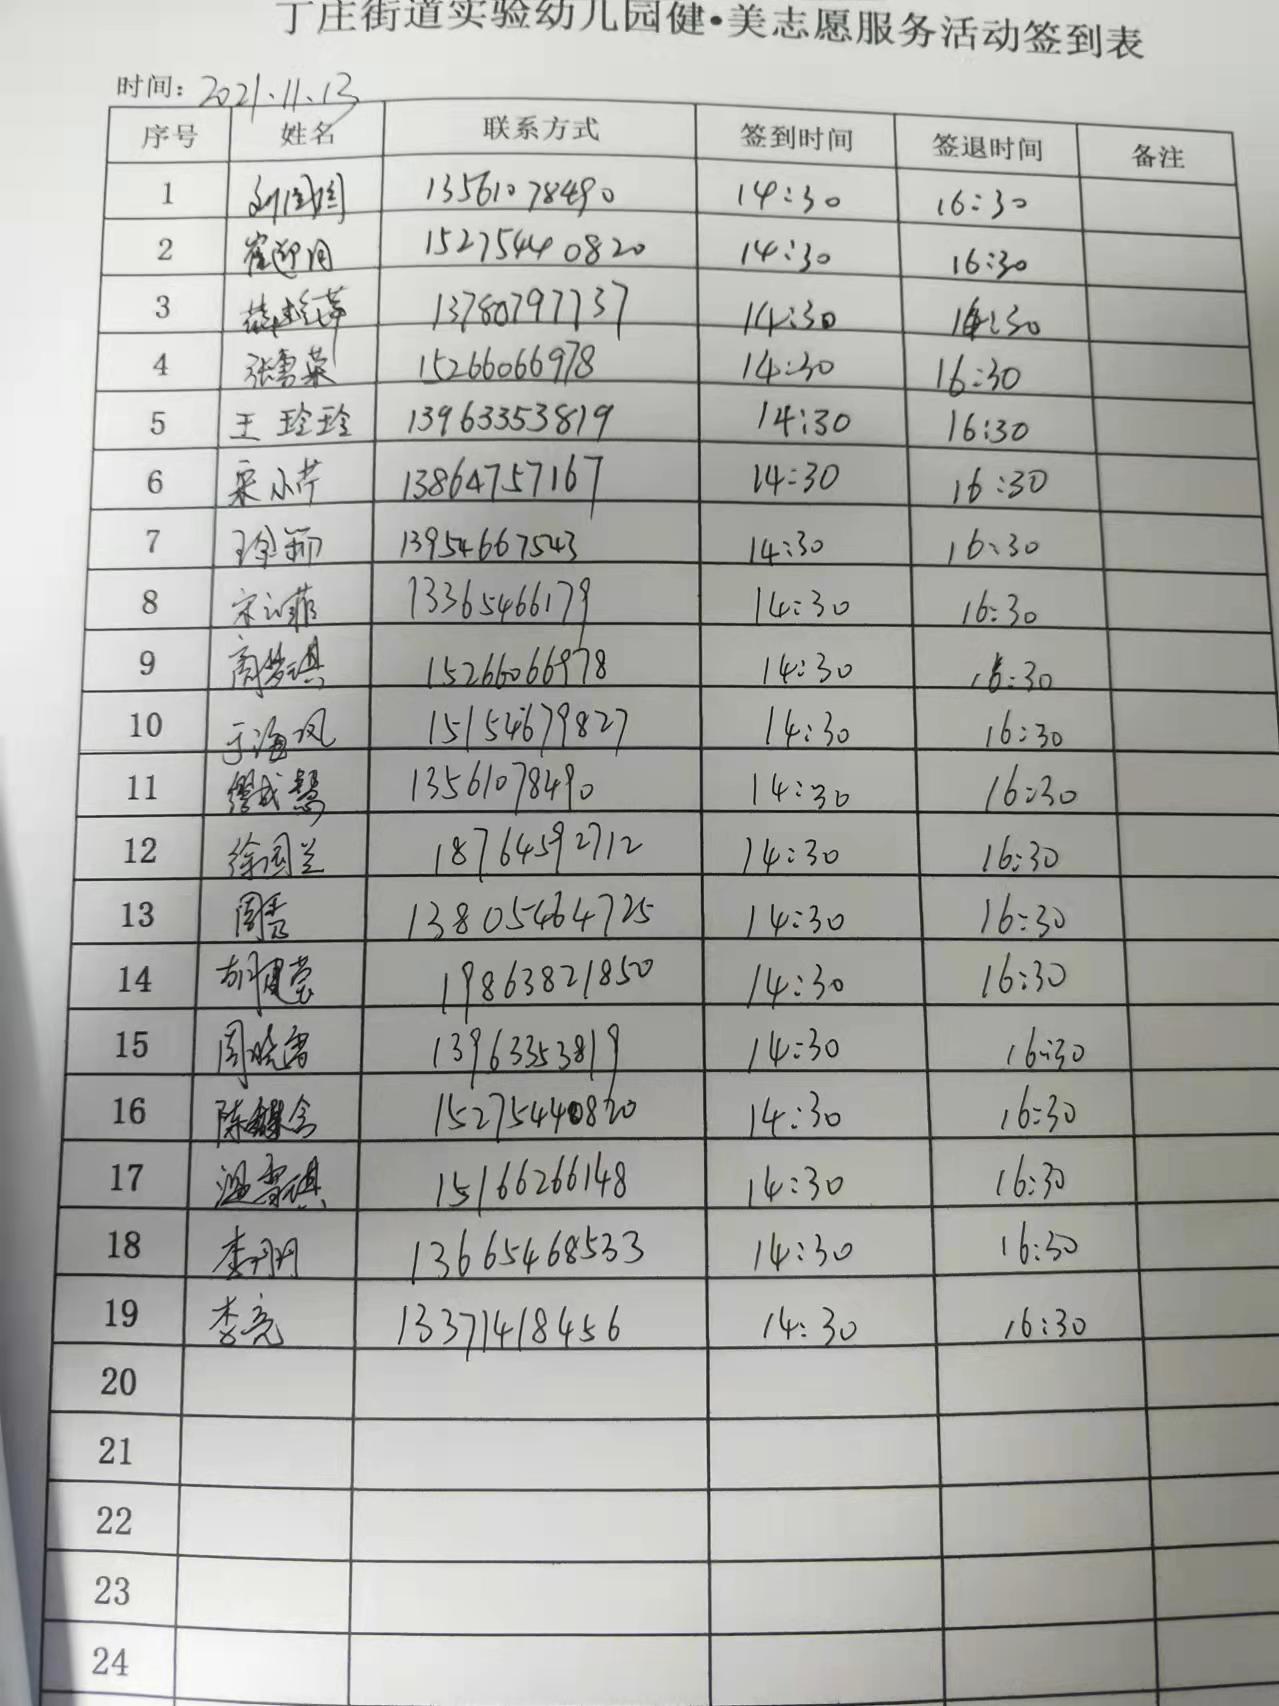 丁庄街道实验幼儿园健·美志愿服务活动签到表
时间：2021.11.13
序号 姓名 联系方式 签到时间 签退时间 备注
1 13561078490 14:30 16:30
2 崔迎月 15275440820 14:30 16:30
3 13780797737 14:30 16:30
4 张雪菜 15266066978 14:30 16:30
5 王玲玲 13963353819 14:30 16:30
6 宋小芹 13864757167 14:30 16:30
7 13954667543 14:30 16:30
8 13365466179 14:30 16:30
9 商梦琪 15266066978 14:30 16:30
10 于海凤 15154679827 14:30 16:30
11 13561078490 14:30 16:30
12 徐国兰 18764592712 14:30 16:30
13 13805464725 14:30 16:30
14 胡建莹 19863821850 14:30 16:30
15 周晓雷 13963353819 14:30 16:30
16 15275440820 14:30 16:30
17 温雪琪 15166266148 14:30 16:30
18 李丹丹 13665468533 14:30 16:30
19 李亮 13371418456 14:30 16:30
20
21
22
23
24